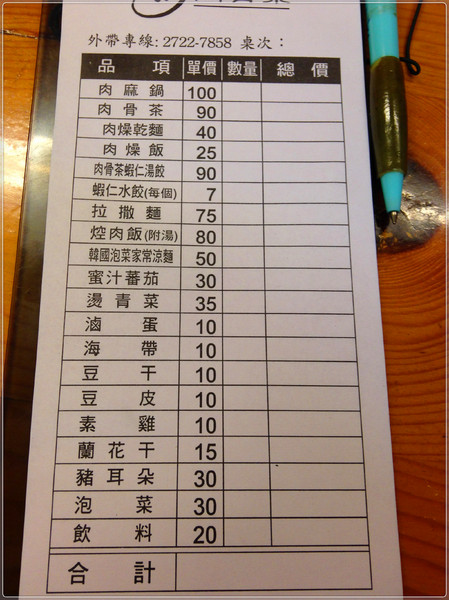 外帶專線: 2722-7858 桌次：
品項 單價 數量 總價
肉麻鍋 100
肉骨茶 90
肉燥乾麵 40
肉燥飯 25
肉骨茶蝦仁湯餃 90
蝦仁水餃(每個) 7
拉撒麵 75
焢肉飯(附湯) 80
韓國泡菜家常涼麵 50
蜜汁蕃茄 30
燙青菜 35
滷蛋 10
海帶 10
豆干 10
豆皮 10
素雞 10
蘭花干 15
豬耳朵 30
泡菜 30
飲料 20
合計